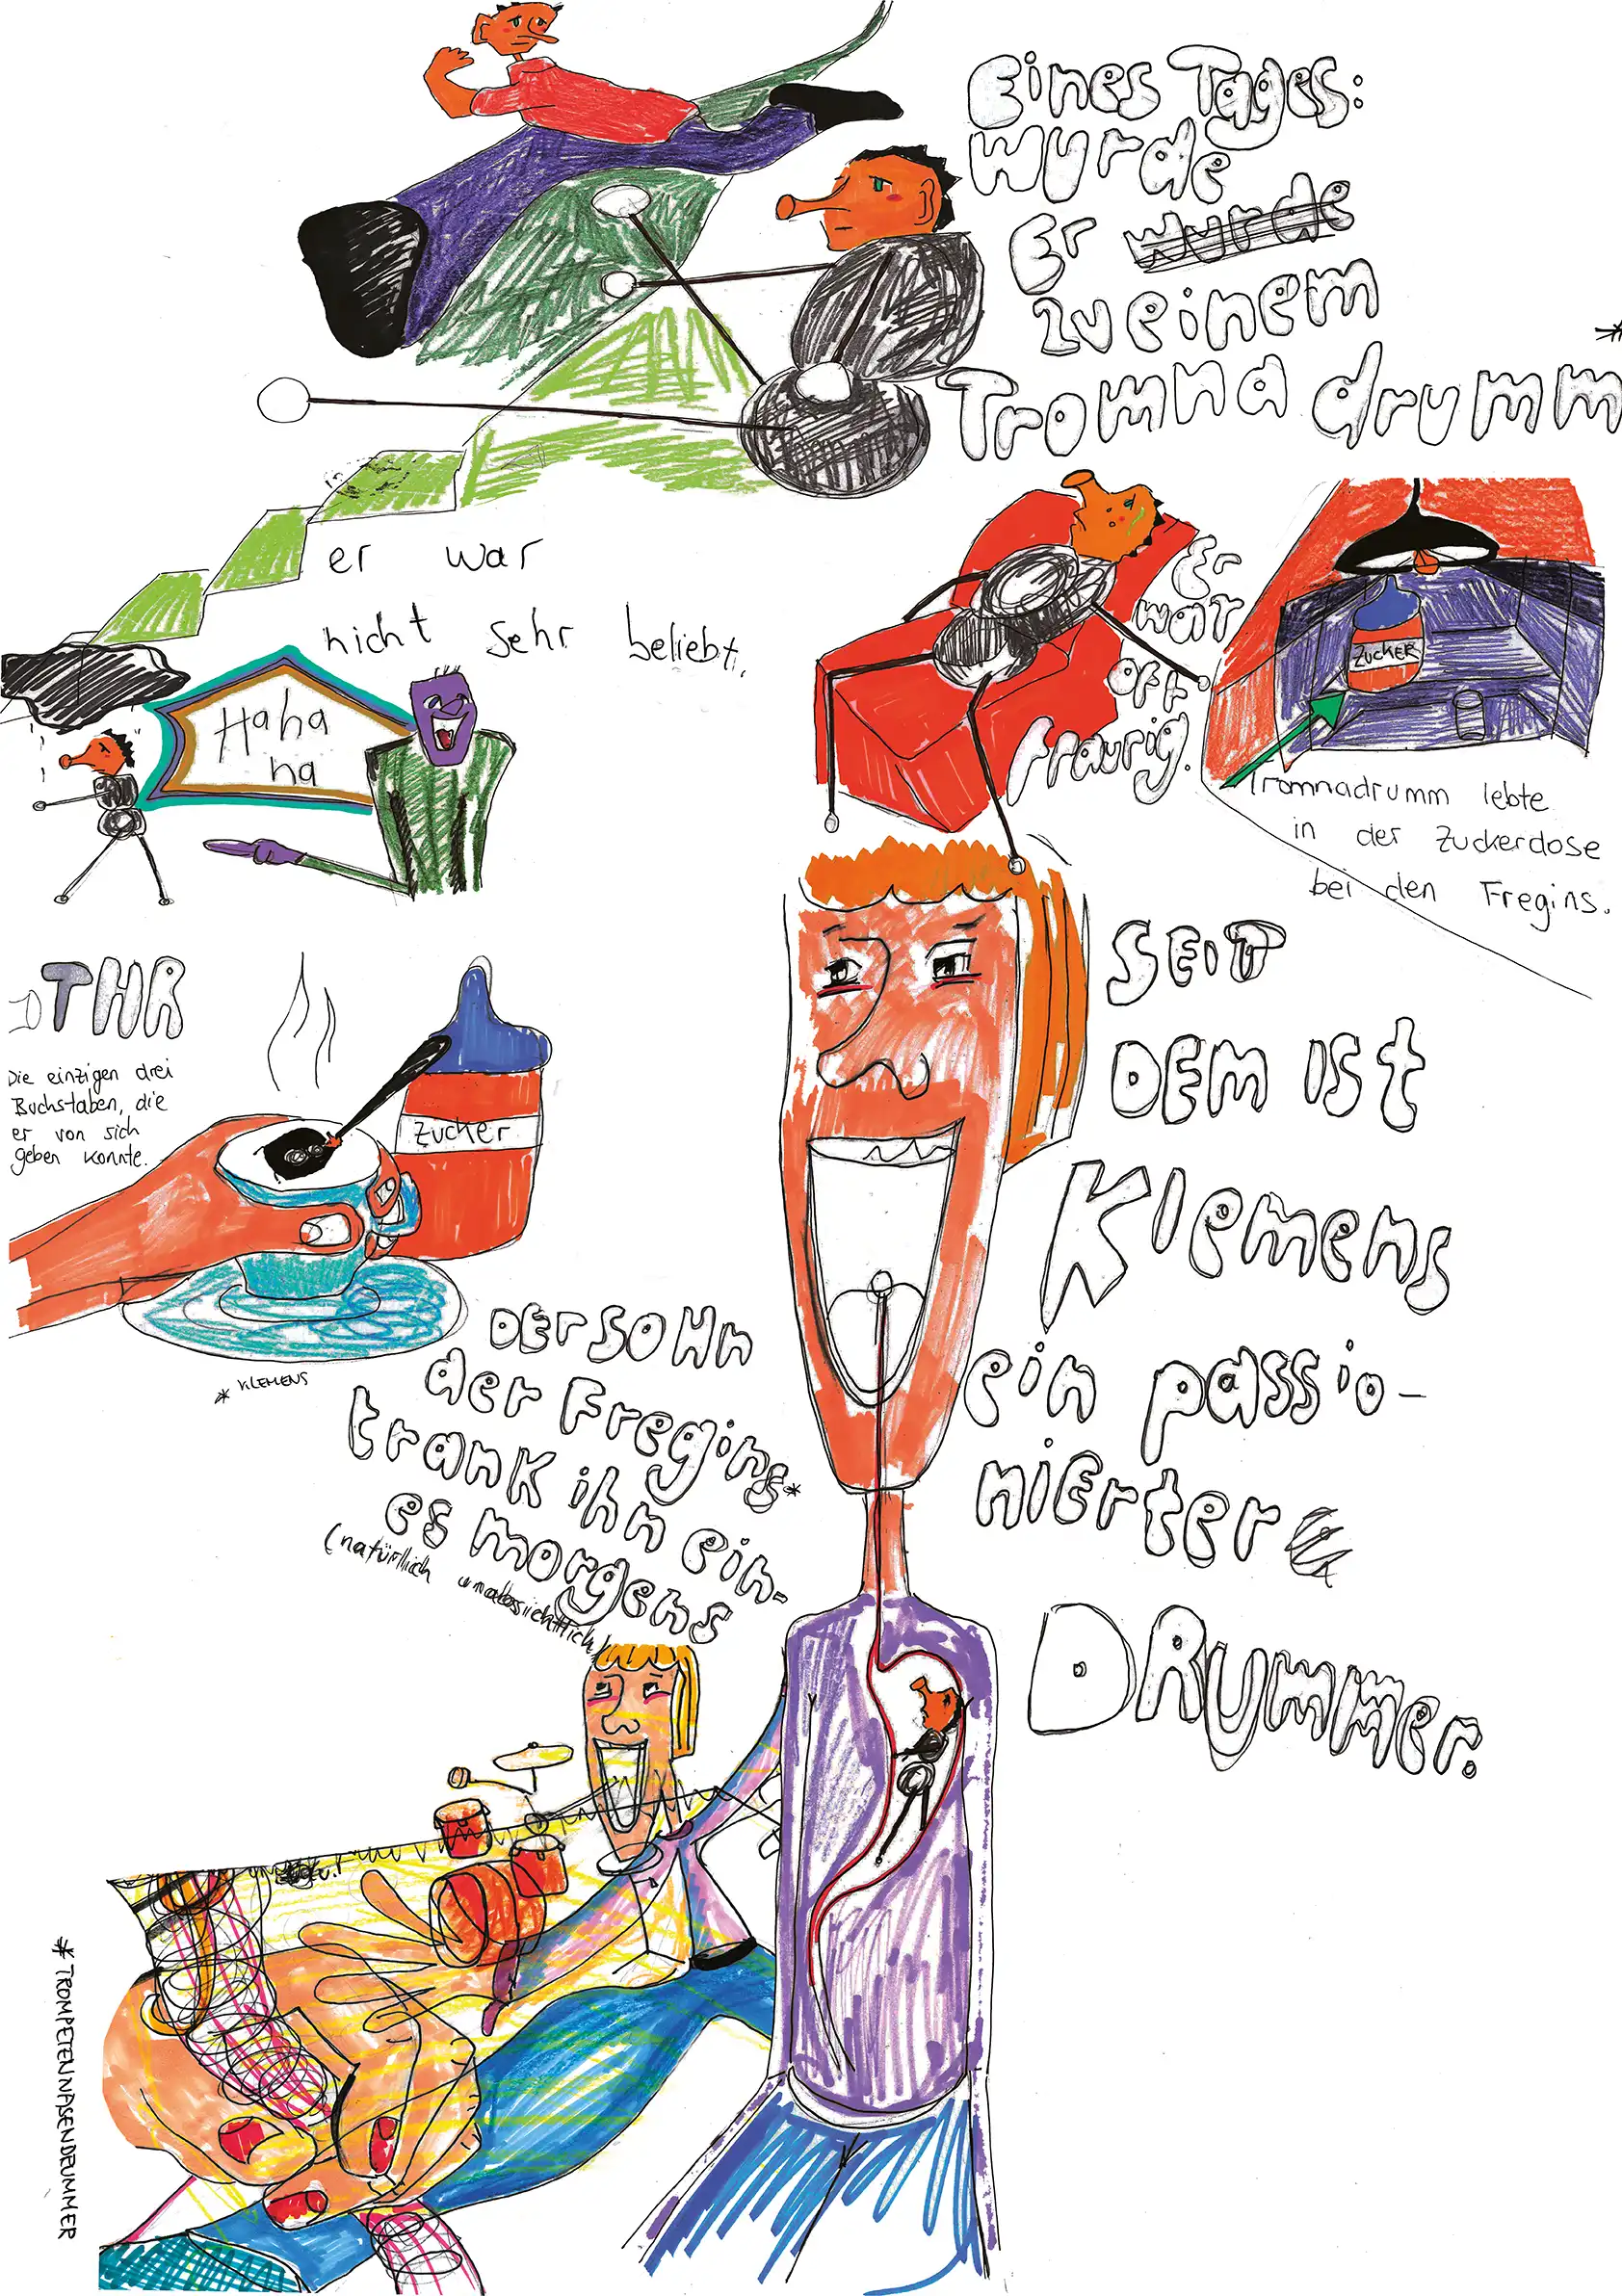 Eines Tages:
wurde
Er wurde
zu einem
*
Tromna drumm
er war
nicht sehr beliebt.
Haha
ha
Er
war
oft
traurig.
ZUCKER
Tromnadrumm lebte
in der Zuckerdose
bei den Fregins.
THR
Die einzigen drei
Buchstaben, die
er von sich
geben konnte.
Zucker
* KLEMENS
DER SOHn
der Fregins*
trank ihn ein-
es morgens
(natürlich unabsichtlich)
SEIT
DEM ISt
Klemens
ein passio-
nierter
DRUmmer.
* TROMPETENNASENDRUMMER